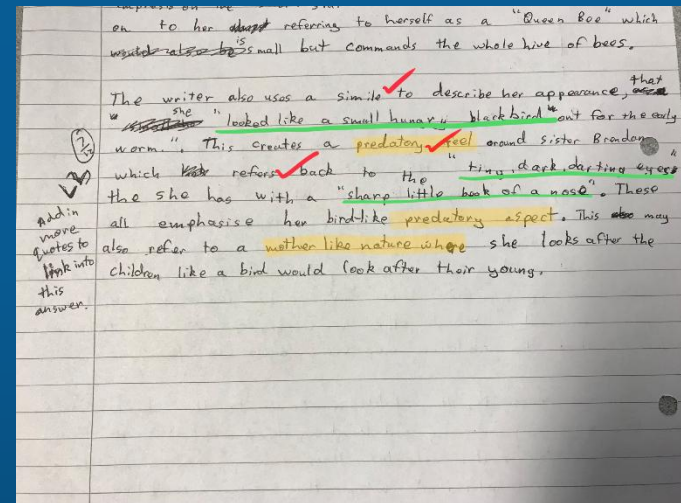 on to her referring to herself as a "Queen Bee" which
is small but commands the whole hive of bees.
The writer also uses a simile to describe her appearance, that
she "looked like a small hungry blackbird out for the early
worm.". This creates a predatory feel around sister Brendan
which refers back to the "tiny, dark, darting eyes"
the she has with a "sharp little hook of a nose". These
all emphasise her bird-like predatory aspect. This may
also refer to a mother like nature where she looks after the
children like a bird would look after their young.
7/12
Add in
more
quotes to
link into
this
answer.